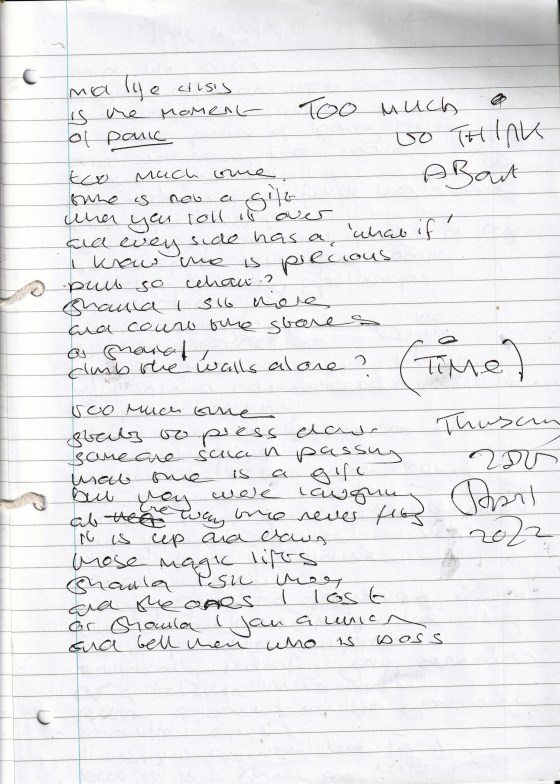 mid life crisis
is the moment
of panic
TOO MUCH
TO THINK
ABOUT
too much time
time is not a gift
when you roll it over
and every side has a 'what if'
I know time is precious
but so what?
should I sit there
and count the stars
or should I
climb the walls alone?
(TIME)
too much time
starts to press down
someone said in passing
that time is a gift
but they were laughing
at the way time never flies
it is up and down
those magic lifts
should I sit
and the ones I lost
or should I join a union
and tell them who is boss
Thursday
28th
April
2022